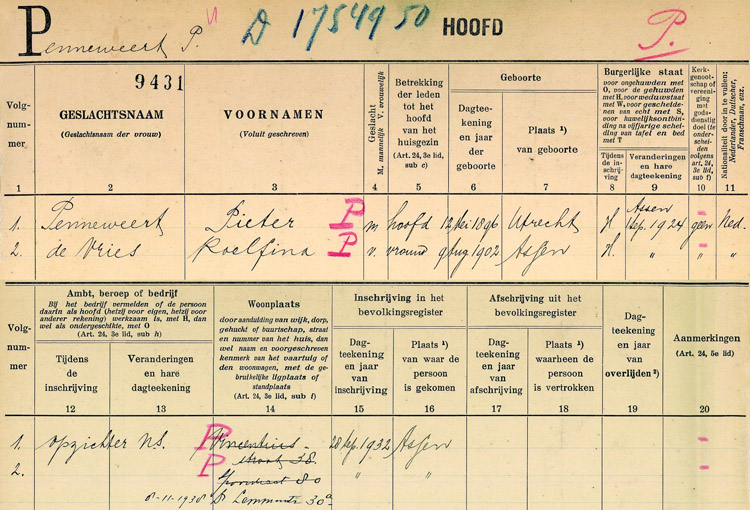 Penneweert P.
D 1754950
HOOFD
P.
9431
Volg-
num-
mer
GESLACHTSNAAM
(Geslachtsnaam der vrouw)
VOORNAMEN
(Voluit geschreven)
Geslacht
M. mannelijk V. vrouwelijk
Betrekking
der leden
tot het
hoofd
van het
huisgezin
(Art. 24, 3e lid,
sub c)
Geboorte
Dagtee-
kening
en jaar
der
geboorte
Plaats ¹)
van geboorte
Burgerlijke staat
voor ongehuwden met
O, voor de gehuwden
met H, voor weduwstaat
met W, voor gescheide-
nen van echt met S,
voor huwelijksontbin-
ding na vijfjarige schei-
ding van tafel en bed
met T
Tijdens
de in-
schrij-
ving
Veranderingen
en hare
dagteekening
Kerk-
genoot-
schap of
vereeni-
ging
met
gods-
dienstig
doel (te
onder-
scheiden
volgens
art. 24,
3e lid,
sub f)
Nationaliteit door in te vullen:
Nederlander, Duitscher,
Franschman, enz.
1 2 3 4 5 6 7 8 9 10 11
1. Penneweert Pieter P m hoofd 12 Mei 1896 Utrecht H. Assen Sep. 1924 geen Ned.
2. de Vries Roelfina P v. vrouw 9 Aug 1902 Assen H. " " "
Volg-
num-
mer
Ambt, beroep of bedrijf
Bij het bedrijf vermelden of de persoon
daarin als hoofd (hetzij voor eigen, hetzij voor
anderer rekening) werkzaam is, met H, dan
wel als ondergeschikte, met O
(Art. 24, 3e lid, sub h)
Tijdens
de
inschrijving
Veranderingen
en hare
dagteekening
Woonplaats
door aanduiding van wijk, dorp,
gehucht of buurtschap, straat
en nummer van het huis, dan
wel naam en voorgeschreven
kenmerk van het vaartuig of
den woonwagen, met de ge-
bruikelijke ligplaats of
standplaats
(Art. 24, 3e lid, sub i)
Inschrijving in het
bevolkingsregister
Dag-
teekening
en jaar
van
inschrijving
Plaats ¹)
van waar de
persoon
is gekomen
Afschrijving uit het
bevolkingsregister
Dag-
teekening
en jaar
van
afschrijving
Plaats ¹)
waarheen de
persoon
is vertrokken
Dag-
teekening
en jaar
van
overlijden ²)
Aanmerkingen
(Art. 24, 5e lid)
12 13 14 15 16 17 18 19 20
1. opzichter N.S. P Vincentius- 28 Sep. 1932 Assen
2. P straat 38. " "
80
8-11-1938 30a